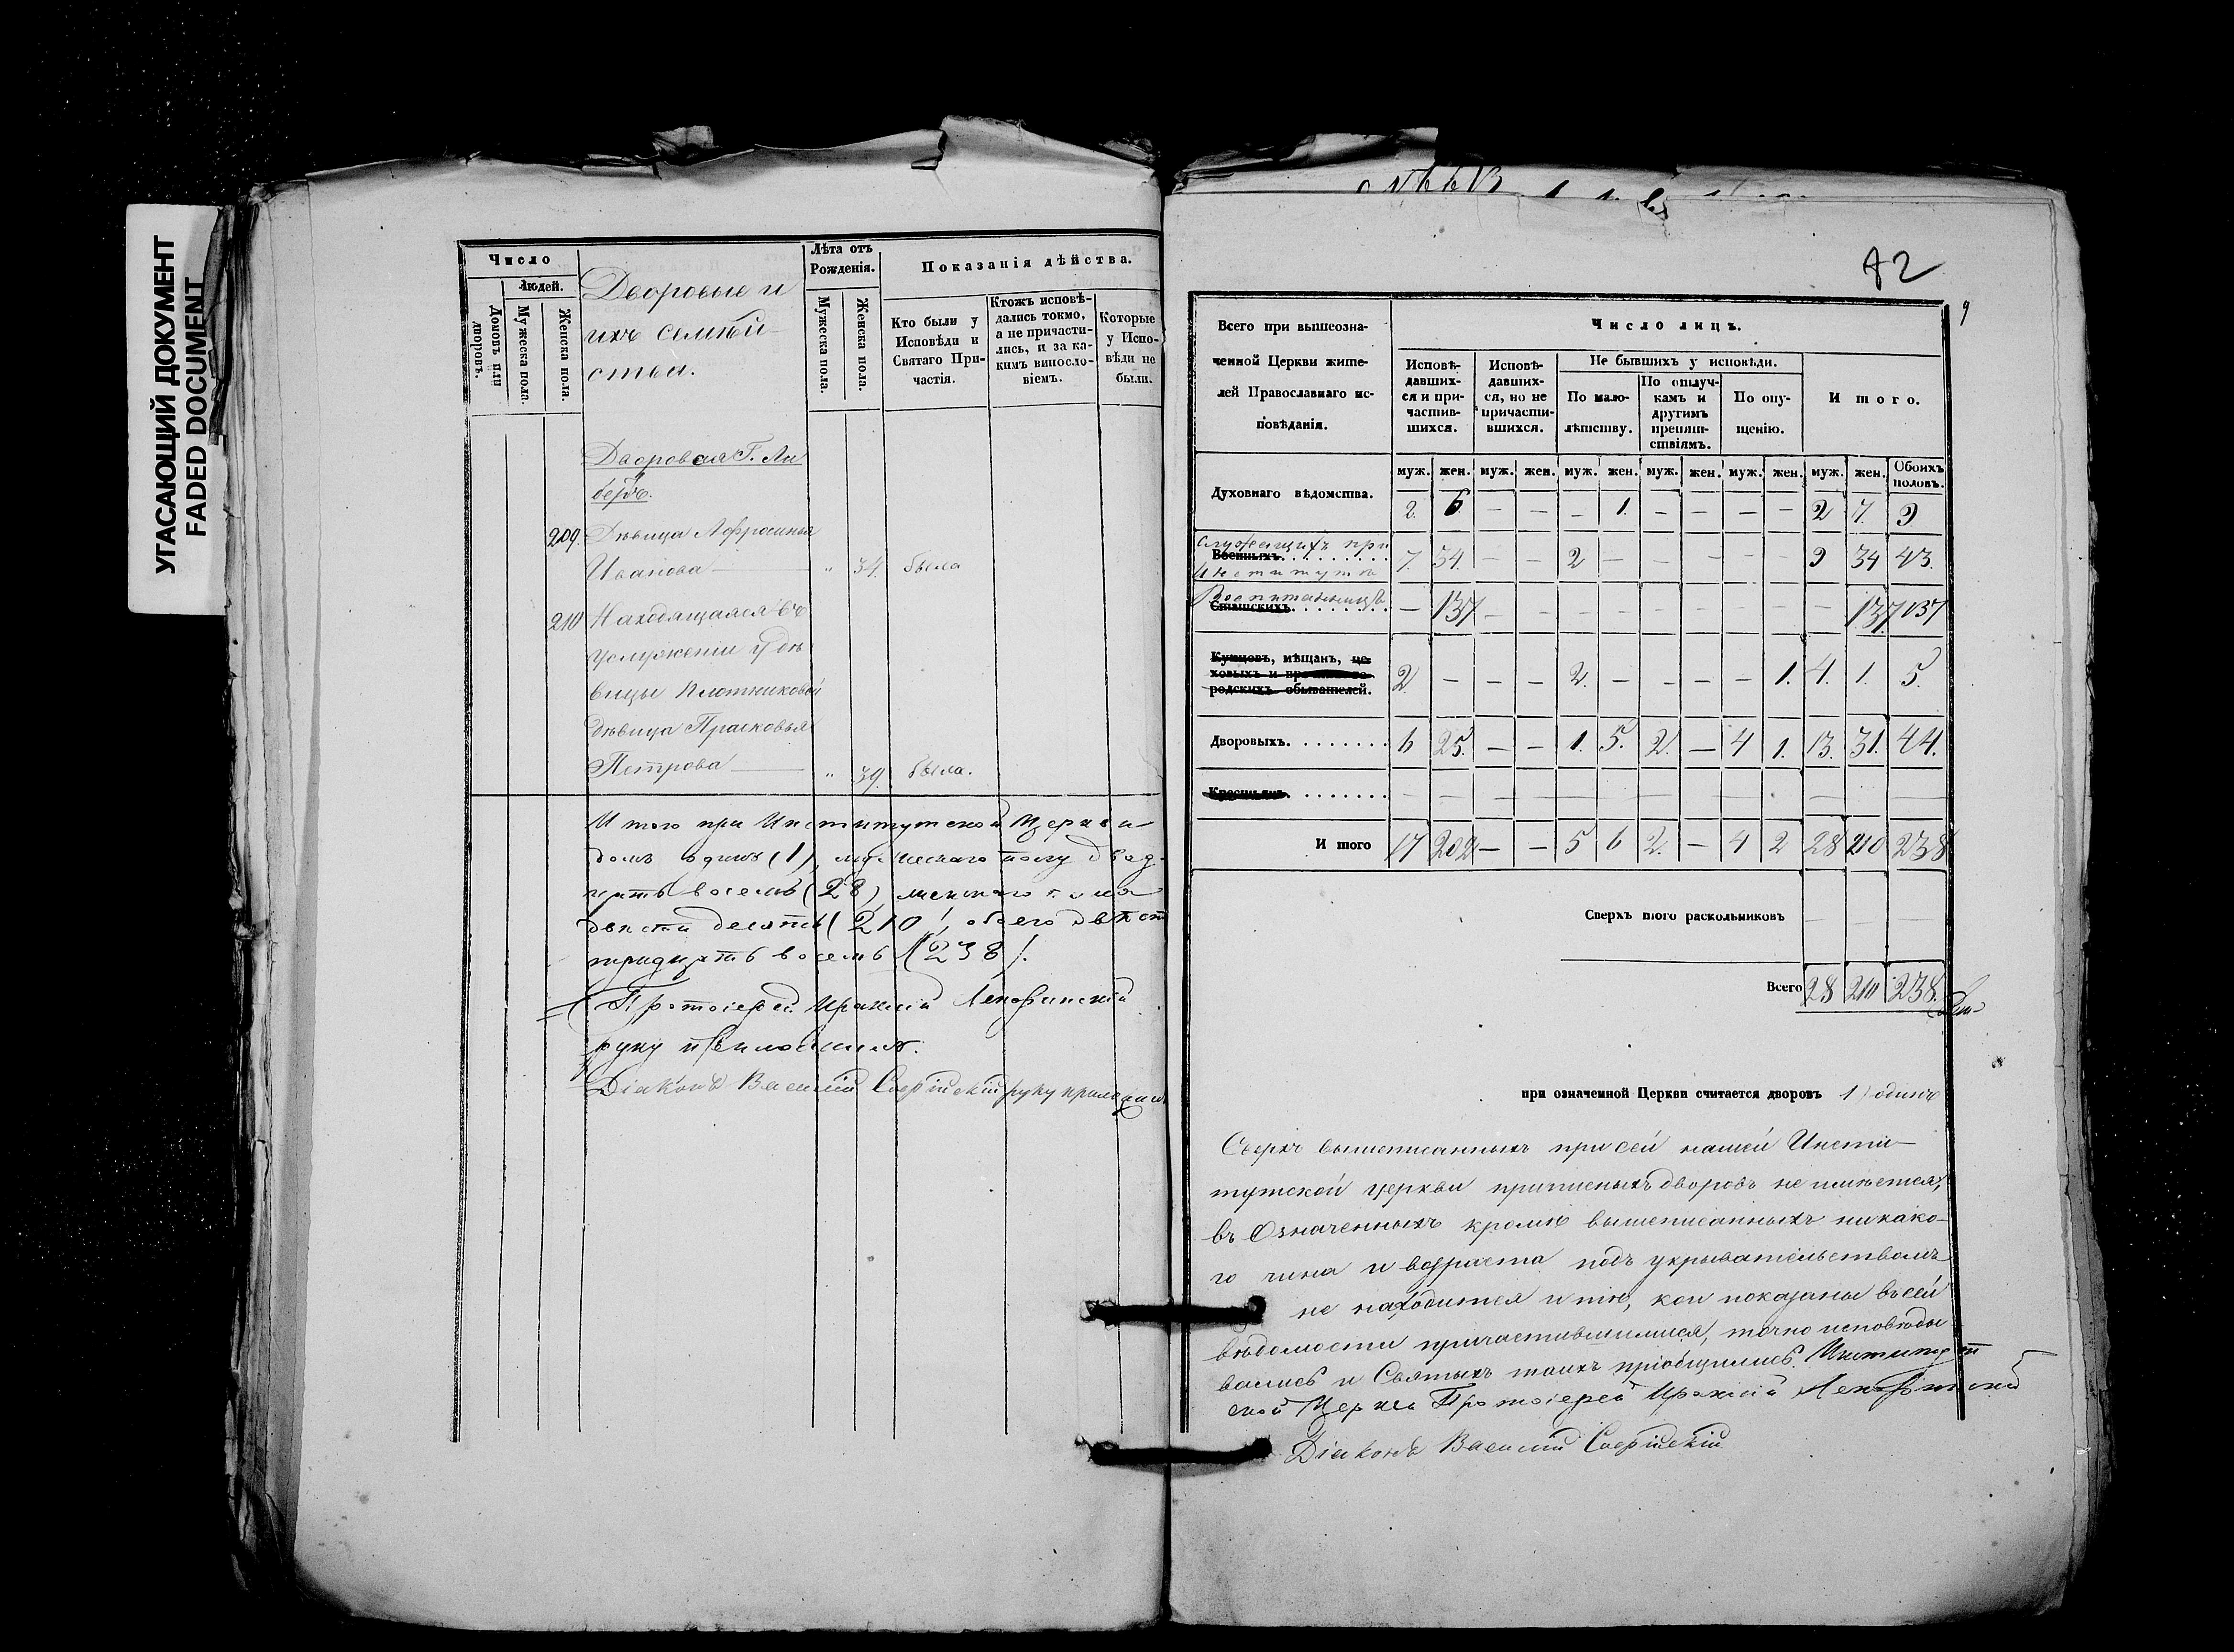 УГАСАЮЩИЙ ДОКУМЕНТ
FADED DOCUMENT
Число
Людей.
Домовъ или дворовъ.
Мужеска пола.
Женска пола.
Дворовые и
ихъ семѣй-
ства.
Лѣта отъ
Рожденія.
Мужеска пола.
Женска пола.
Показанія дѣйства.
Кто были у
Исповѣди и
Святаго При-
частія.
Ктожъ исповѣ-
дались токмо,
а не причасти-
лись, и за ка-
кимъ винослo-
віемъ.
Которые
у Испо-
вѣди не
были.
Дворовая Г.
209. Дѣвица Афросинья
Иванова — " 34. была
210 Находящаяся въ
услуженіи у дѣ
вицы Плотниковой
дѣвица Прасковья
Петрова — " 39. была.
Итого при Институтской Церкви
домъ одинъ (1), мужескаго полу двад-
цать восемь (28), женскаго пола
двѣсти десять (210), обоего двѣст
тридцать восемь (238).
Протоіерей Ираклій
руку приложилъ.
Діаконъ Василій руку приложилъ
82
9
Всего при вышеозна-
ченной Церкви жите-
лей Православнаго ис-
повѣданія.
Число лицъ.
Исповѣ-
давших-
ся и при-
частив-
шихся.
Исповѣ-
давших-
ся, но не
причасти-
вшихся.
Не бывшихъ у исповѣди.
По мало-
лѣтству.
По отлуч-
камъ и
другимъ
препят-
ствіямъ.
По опу-
щенію.
Итого.
муж. жен. муж. жен. муж. жен. муж. жен. муж. жен. муж. жен. Обоихъ половъ.
Духовнаго вѣдомства. 2. 6 — — — 1. — — — — 2 7. 9
служащихъ при
Военныхъ. 7. 34. — — 2 — — — — 9 34 43.
Институтѣ
Воспитанницъ
Статскихъ. — 137 — — — — — — — — — 137 137
Купцовъ, мѣщанъ, це-
ховыхъ и прочихъ го-
родскихъ обывателей. 2 — — — 2. — — — — 1. 4. 1. 5.
Дворовыхъ. 6 25. — — 1. 5. 2. — 4 1. 13. 31. 44.
Крестьянъ. — — — — — — — — — — — — —
Итого 17 202 — — 5 6 2. — 4 2 28 210 238
Сверхъ того раскольниковъ — — —
Всего 28 210 238.
при означенной Церкви считается дворовъ 1) одинъ
Сверхъ вышеписанныхъ при сей нашей Инсти-
тутской церкви приписныхъ дворовъ не имѣется,
въ Означенныхъ кромѣ вышеписанныхъ никако-
го чина и возраста подъ укрывательствомъ
не находится и тѣ, кои показаны въ сей
вѣдомости причастившимися, точно исповѣды
вались и Святыхъ таинъ пріобщились. Институт
ской Церкви Протоіерей Ираклій
Діаконъ Василій